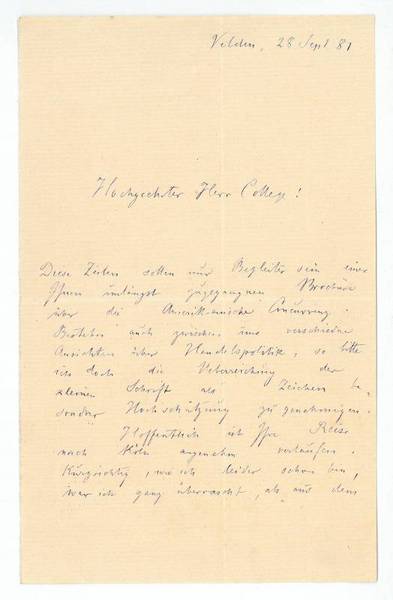 Velden, 28 Sept 81
Hochgeehrter Herr College!
Diese Zeilen sollen nur Begleiter sein einer
Ihnen unlängst zugegangenen Brochüre
über die Amerikanische Concurrenz.
Bestehen auch zwischen uns verschiedene
Ansichten über Handelspolitik, so bitte
ich doch die Ueberreichung der
kleinen Schrift als Zeichen be-
sondrer Hochschätzung zu genehmigen.
Hoffentlich ist Ihre Reise
nach Köln angenehm verlaufen.
Kurzsichtig, wie ich leider schon bin,
war ich ganz überrascht, als aus dem